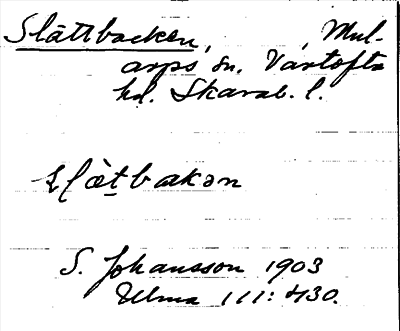 Slättbacken, Mul-
arps sn. Vartofta
hd. Skarab. l.
slàtbakən
S. Johansson 1903
Ulma 111:430.